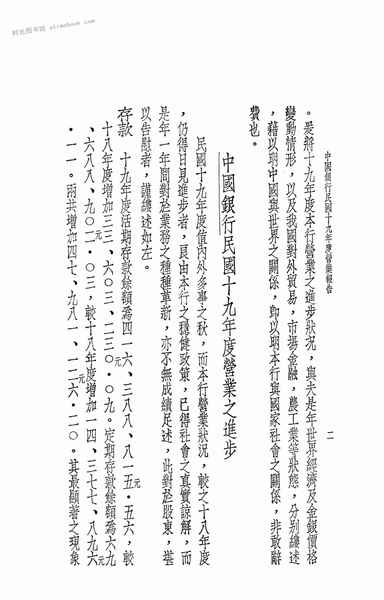 时光图书馆 slzmebook.com
中國銀行民國十九年度營業報告
二
。爰將十九年度本行營業之進步狀況，與夫是年世界經濟及金銀價格
變動情形，以及我國對外貿易，市場金融，農工業等狀態，分別縷述
，藉以明中國與世界之關係，卽以明本行與國家社會之關係，非敢辭
費也。
中國銀行民國十九年度營業之進步
民國十九年度值內外多事之秋，而本行營業狀況，較之十八年度
，仍得日見進步者，良由本行之穩健政策，已得社會之眞實諒解，而
是年一年間對於業務之種種革新，亦不無成績足述，此對於股東，堪
以告慰者，謹縷述如左。
存款　十九年度活期存款餘額爲四一六、三八八、八一五元・五六，較
十八年度增加三三、六〇三、二三〇元・〇九。定期存款餘額爲六九
、六八八、九〇二元・〇三，較十八年度增加一四、三七七、八九六元
・一一。兩共增加四七、九八一、一二六元・二〇。其最顯著之現象